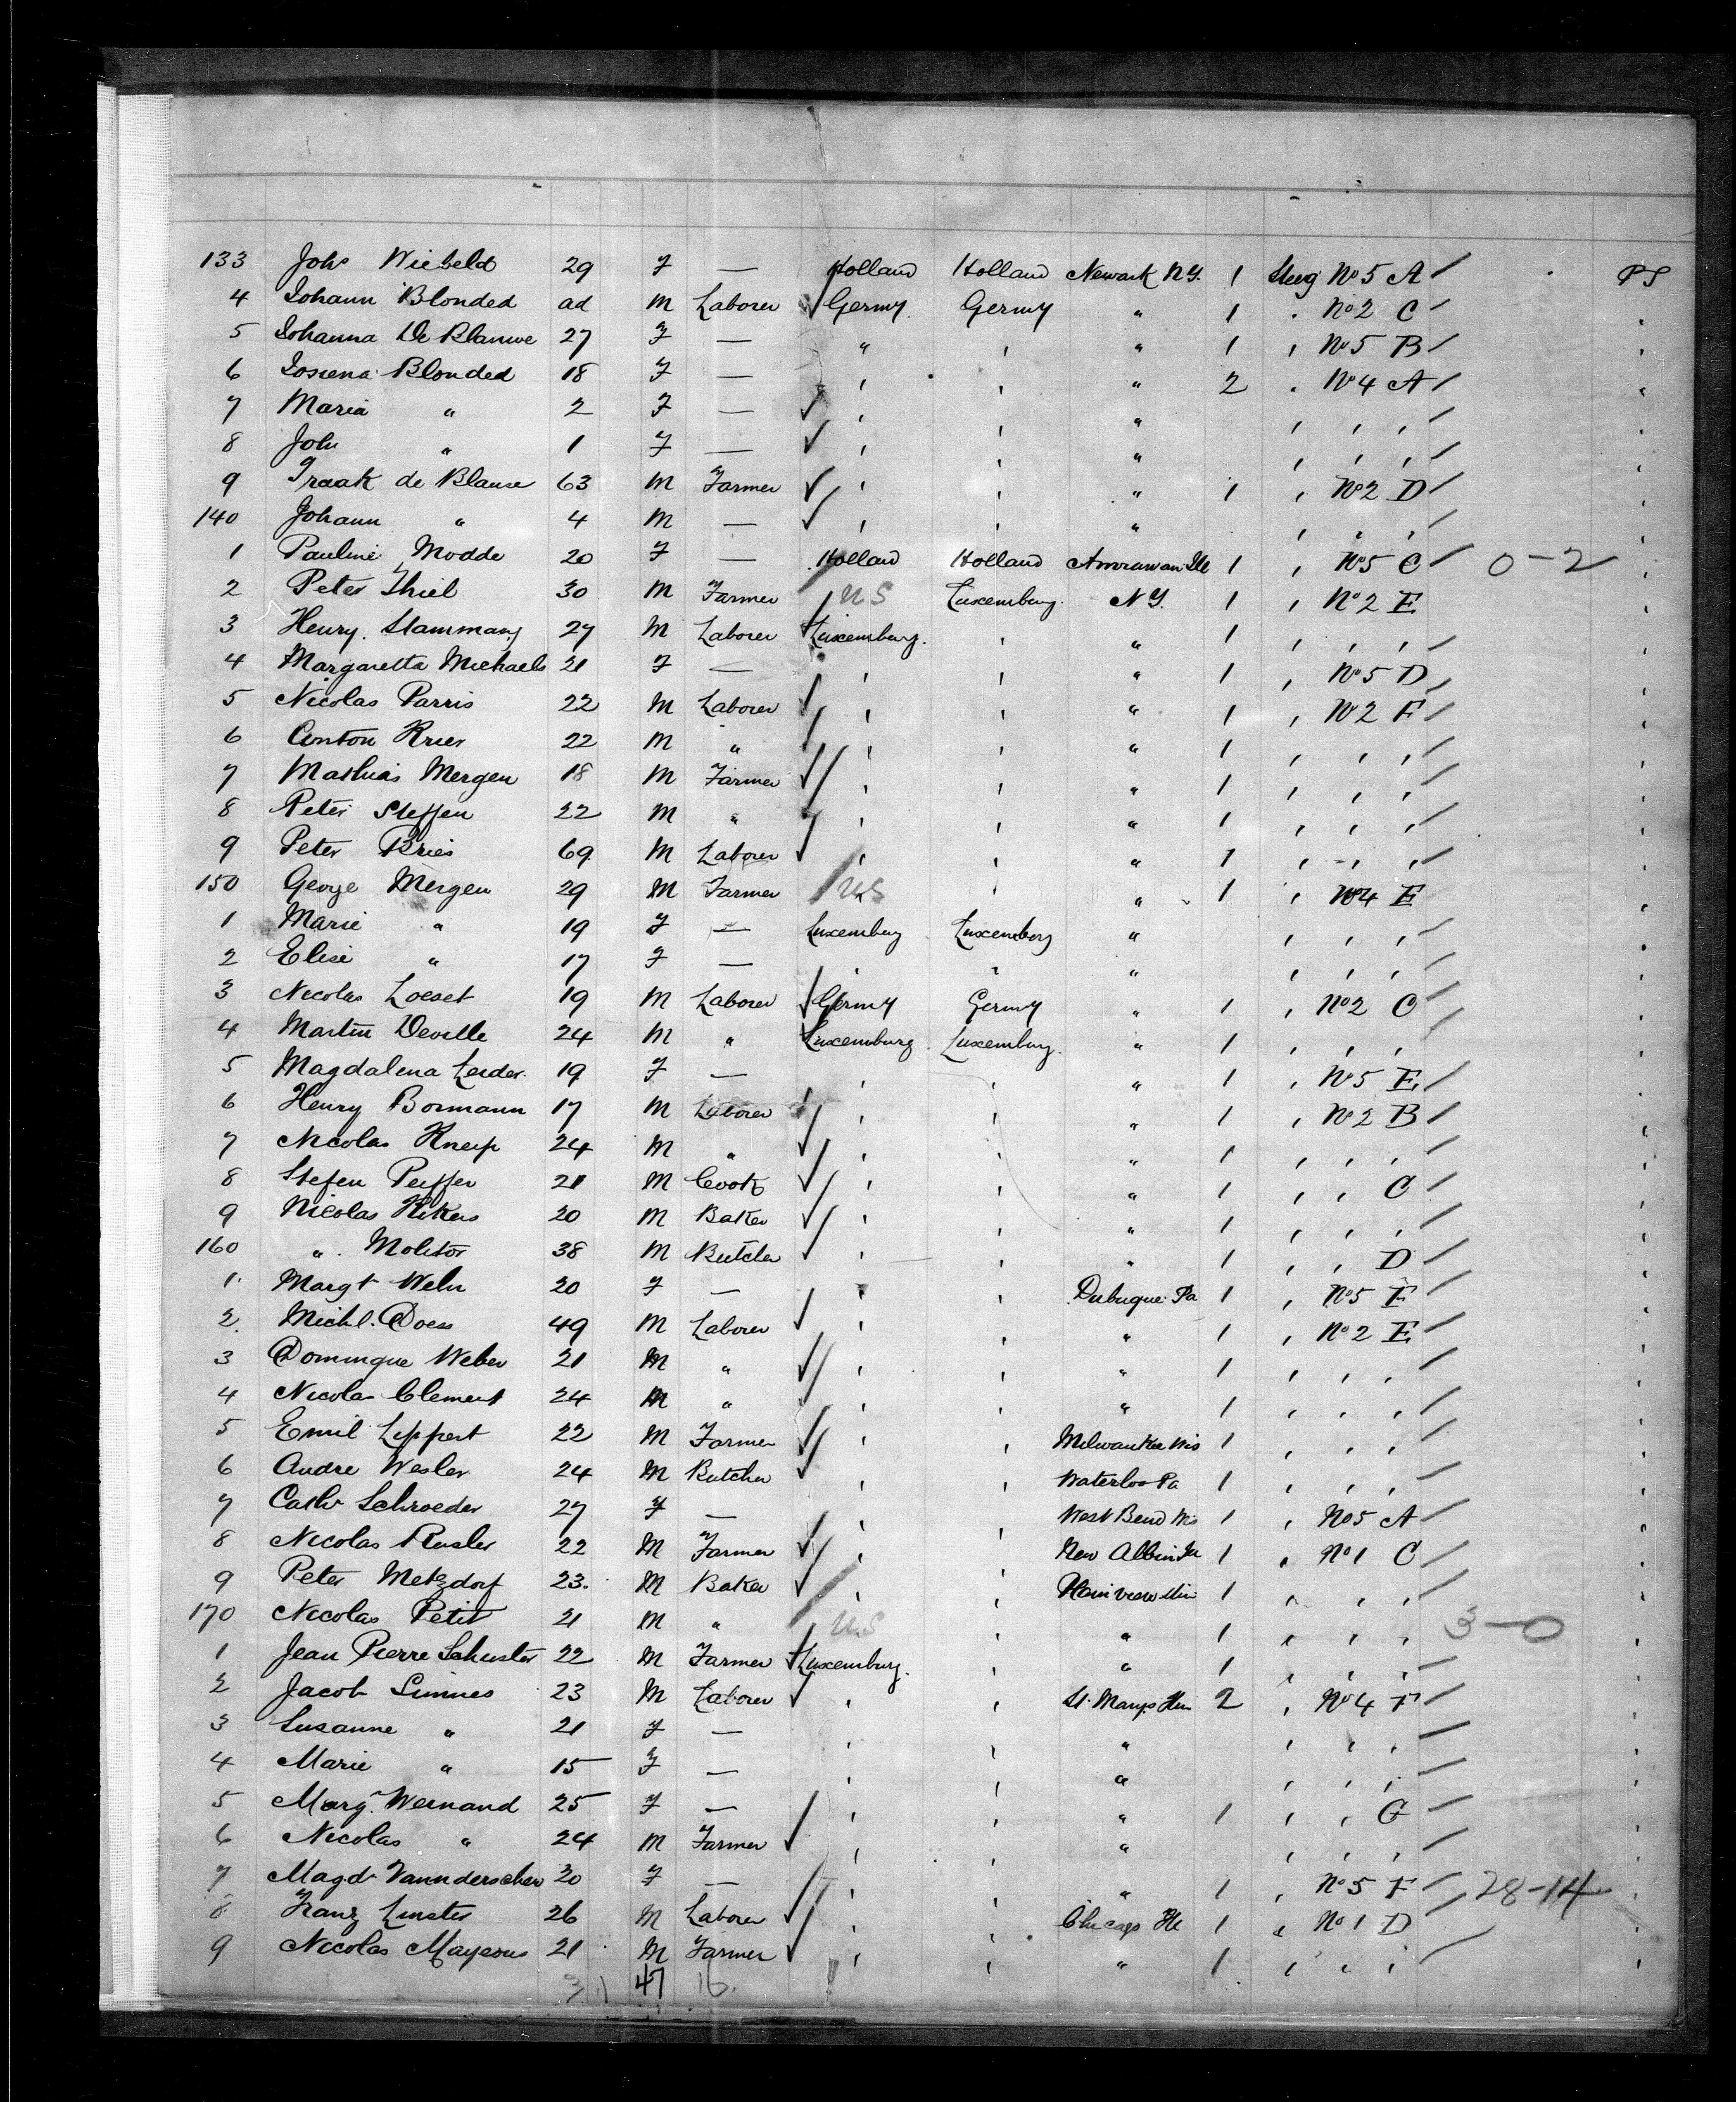 133 Joh Wiebeld 29 F — Holland Holland Newark N.Y. 1 Steeg No 5 A / PS
4 Johann Blonded ad M Laborer ✓ Germy Germy " 1 " No 2 C /
5 Johanna De Blanwe 27 F — " " " 1 " No 5 B /
6 Blonded 18 F — " " " 2 " No 4 A /
7 Maria " 2 F — ✓ " " " " " " /
8 Joh " 1 F — ✓ " " " " " " /
9 de Blause 63 M Farmer ✓ " " " 1 " No 2 D /
140 Johann " 4 M — ✓ " " " " " " /
1 Pauline Modde 20 F — Holland Holland Ill 1 " No 5 C / 0-2
2 Peter Thiel 30 M Farmer / US Luxemburg N.Y. 1 " No 2 E
3 Henry 27 M Laborer Luxemburg " " 1 " " " /
4 Margaretta Michaels 21 F — " " " 1 " No 5 D /
5 Nicolas Parris 22 M Laborer ✓ " " " 1 " No 2 F /
6 Anton Krier 22 M " / " " " 1 " " " /
7 Mathias Mergen 18 M Farmer ✓ / " " " 1 " " " /
8 Peter Steffen 22 M " / " " " 1 " " " /
9 Peter Bries 69 M Laborer ✓ " " " 1 " " " /
150 George Mergen 29 M Farmer / US " " 1 " No 4 E
1 Marie " 19 F — Luxemburg Luxemburg " " " " /
2 Elise " 17 F — " " " " " " /
3 Nicolas Loeset 19 M Laborer ✓ Germy Germy " 1 " No 2 C /
4 Martin Deville 24 M " Luxemburg Luxemburg " 1 " " " /
5 Magdalena Leider 19 F — " " " 1 " No 5 E /
6 Henry Bormann 17 M Laborer / " " " 1 " No 2 B /
7 Nicolas Kneip 24 M " ✓ " " " 1 " " " /
8 Stefen Peiffer 21 M Cook ✓ " " " 1 " " C /
9 Nicolas Kikers 20 M Baker ✓ " " " 1 " " " /
160 " Molitor 38 M Butcher ✓ " " " 1 " " D /
1 Margt Weln 20 F — " " Dubuque Pa 1 " No 5 F /
2 Michl. Doess 49 M Laborer ✓ " " " 1 " No 2 E /
3 Domingue Weber 21 M " ✓ " " " 1 " " " /
4 Nicola Clement 24 M " ✓ " " " 1 " " " /
5 Emil Lippert 22 M Farmer ✓ " " Milwaukee Wis 1 " " " /
6 Andre Wesler 24 M Butcher ✓ " " Waterloo Pa 1 " " " /
7 Cath Schroeder 27 F — " " West Bend Wis 1 " No 5 A /
8 Nicolas Rusler 22 M Farmer ✓ " " New Albin Ia 1 " No 1 C /
9 Peter Metzdorf 23 M Baker ✓ " " Plainview Min 1 " " " /
170 Nicolas Petit 21 M " / US " " 1 " " " 3-0
1 Jean Pierre Schuster 22 M Farmer Luxemburg " " 1 " " " /
2 Jacob Simmes 23 M Laborer ✓ " " St. Marys 2 " No 4 F /
3 Susanne " 21 F — " " " " " " /
4 Marie " 15 F — " " " " " " /
5 Marg. Wernand 25 F — " " " 1 " " G /
6 Nicolas " 24 M Farmer ✓ " " " " " " /
7 Magd 30 F — " " " 1 " No 5 F / 28-14
8 Franz Linster 26 M Laborer ✓ " " Chicago Ill 1 " No 1 D /
9 Nicolas Mayeous 21 M Farmer ✓ " " " 1 " " " /
31 47 16